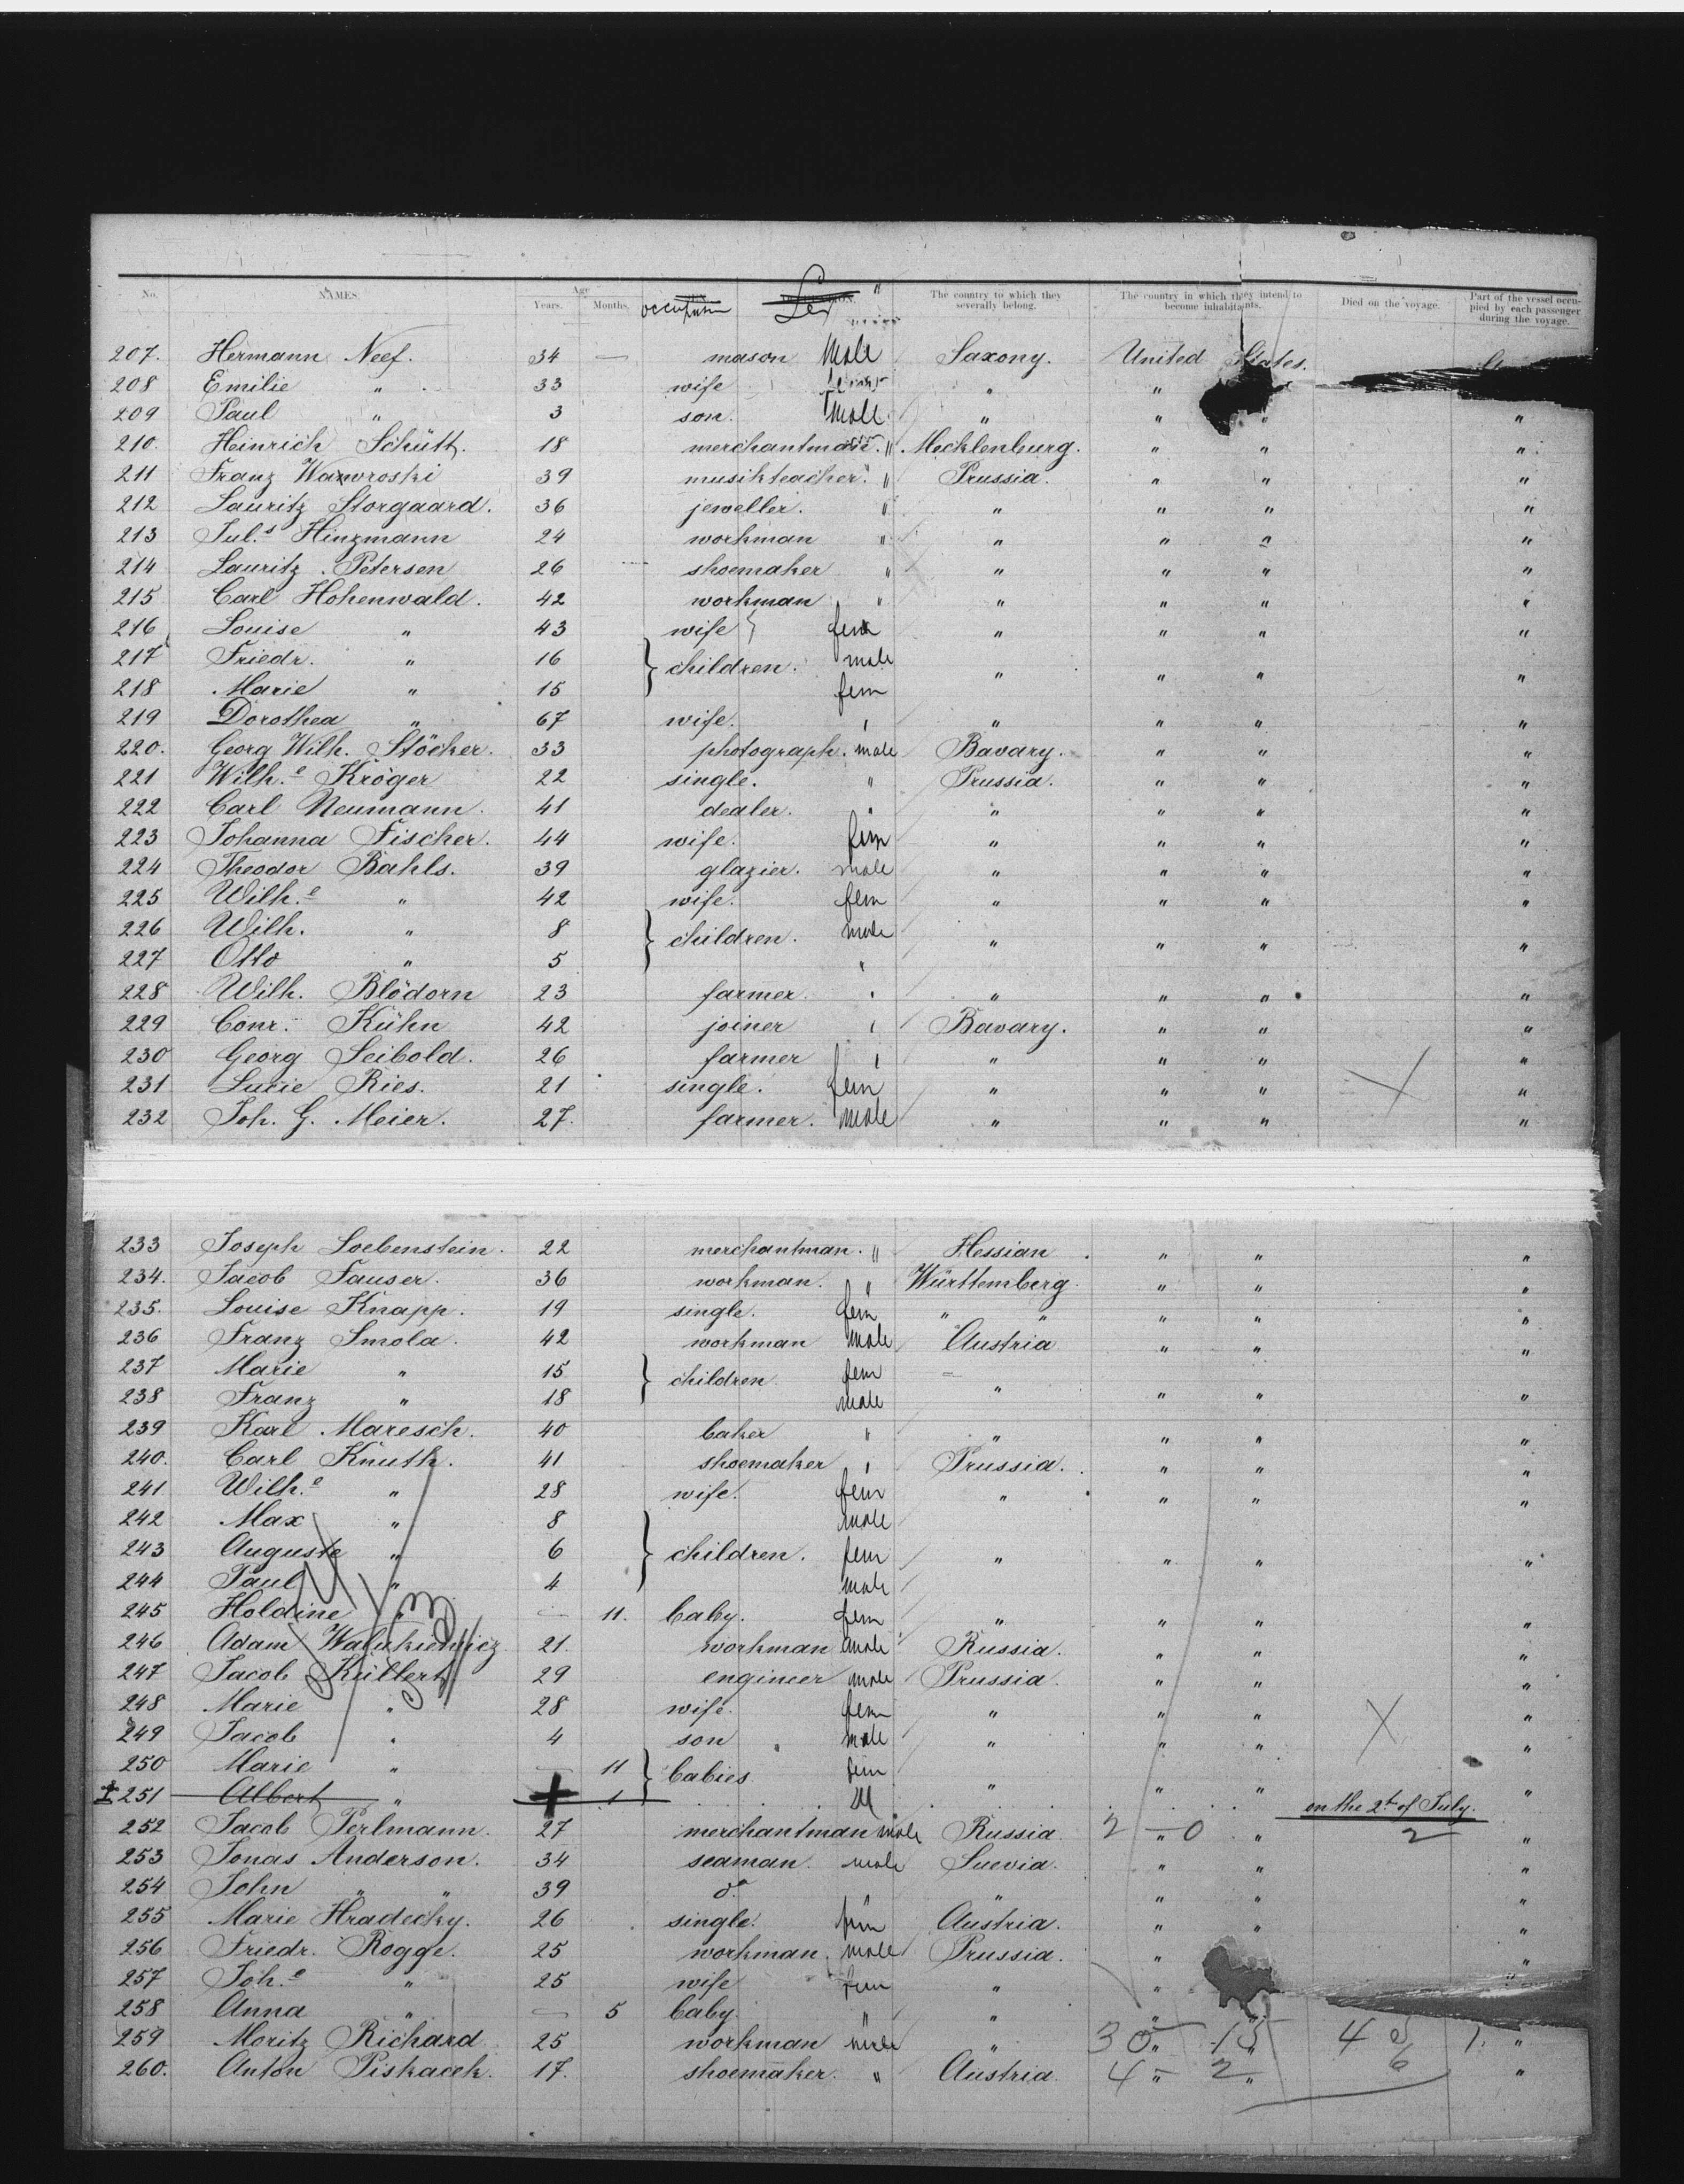 No. NAMES. Age Years. Months. occupation Sex The country to which they severally belong. The country in which they intend to become inhabitants. Died on the voyage. Part of the vessel occupied by each passenger during the voyage.
207. Hermann Neef. 34 — mason Male Saxony. United States.
208 Emilie " 33 wife " "
209 Paul " 3 son. Male " " " "
210. Heinrich Schütt. 18 merchantman. " Mecklenburg. " " "
211 Franz Wawroski 39 musikteacher. " Prussia. " " "
212 Lauritz Storgaard. 36 jeweller. " " " " "
213 Jul.s Hinzmann 24 workman " " " " "
214 Lauritz Petersen 26 shoemaker " " " " "
215 Carl Hohenwald. 42 workman " " " " "
216 Louise " 43 wife } fem " " " "
217 Friedr. " 16 } children. male
218 Marie " 15 fem " " " "
219 Dorothea " 67 wife. " " " " "
220. Georg Wilh. Stöcker. 33 photograph. male Bavary. " " "
221 Wilh.e Kröger 22 single. " Prussia. " " "
222 Carl Neumann. 41 dealer. " " " " "
223 Johanna Fischer. 44 wife. fem " " " "
224 Theodor Bahls. 39 glazier. male " " " "
225 Wilh.e " 42 wife. fem " " " "
226 Wilh. " 8 } children. male
227 Otto " 5 " " " " "
228 Wilh. Blödorn 23 farmer. " " " " "
229 Conr. Kühn 42 joiner " Bavary. " " "
230 Georg Seibold. 26 farmer " " " " "
231 Lucie Ries. 21 single. fem " " " X "
232 Joh. G. Meier. 27. farmer. male " " " "
233 Joseph Loebenstein. 22 merchantman. " Hessian. " " "
234. Jacob Fauser. 36 workman. " Württemberg " " "
235. Louise Knapp. 19 single. fem " " " " "
236 Franz Smola. 42 workman male Austria " " "
237 Marie " 15 } children fem
238 Franz " 18 male " " " "
239 Karl Maresch. 40 baker " " " " "
240. Carl Knuth. 41 shoemaker " Prussia. " " "
241 Wilh.e " 28 wife. fem " " " "
242 Max " 8 male
243 Auguste " 6 } children. fem " " " "
244 Paul " 4 male
245 Holdine " — 11. baby. fem " " " "
246 Adam Walukiewicz 21. workman male Russia. " " "
247 Jacob Küllert 29 engineer male Prussia. " " "
248 Marie " 28 wife. fem " " " "
249 Jacob " 4 son male " " " X "
250 Marie " — 11 } babies fem
+ 251 Albert " + 1 M " " " on the 2t of July. "
252 Jacob Perlmann. 27 merchantman male Russia. 2 — 0 " " 2 "
253 Jonas Anderson. 34 seaman. male Suevia. " " "
254 John " " 39 do. " " " " "
255 Marie Hradecky. 26 single. fem Austria. " " "
256 Friedr. Rogge. 25 workman. male Prussia. " "
257 Joh.e " 25 wife fem " " "
258 Anna " — 5 baby. " " "
259 Moritz Richard 25 workman male " 30 " 15 " 4 1. "
260. Anton Piskacek. 17. shoemaker. " Austria. 4 " 2 " 6 "